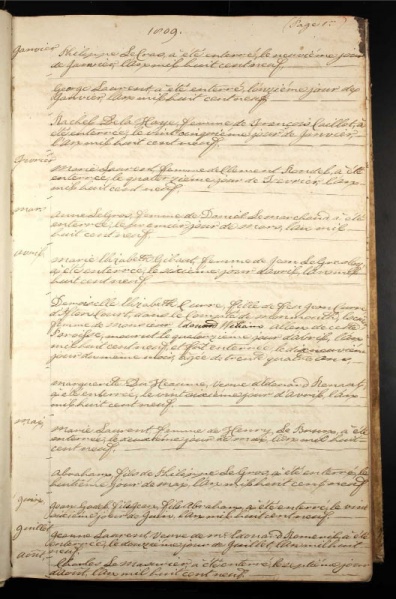 1809.
Page 1
Janvier Philippe Le Gros, a été enterré, le neuvième jour
de Janvier, l'an mil huit cent neuf
George Laurent, a été enterré, l'onzième jour de
Janvier, l'an mil huit cent neuf.
Rachel De la Haye, femme de François Caillet, a
été enterrée, le vint cinquième jour de Janvier,
l'an mil huit cent neuf.
Fevrier Marie Laurent femme de Clement a été
enterrée, le jour de Fevrier, l'an
mil huit cent neuf.
mars Anne Le Gros, femme de Daniel Lemarchand a été
enterrée, le premier jour de mars, l'an mil
huit cent neuf.
avril Marie Elizabeth femme de Jean Le Gresley
a été enterrée, le sixième jour d'avril, l'an mil
huit cent neuf.
Demoiselle Elizabeth fille de feu Jean
dans le Comté de Monmouth,
femme de monsieur de cette
Paroisse, mourut le quatorzième jour d'avril, l'an
mil huit cent neuf, et fut enterrée, le dix neuvième
jour du même mois, agée de trente quatre ans
Marguerite veuve d'Edouard
a été enterrée, le vint jour d'Avril, l'an
mil huit cent neuf.
may Marie Laurent femme de Henry Le Brun, a été
enterrée, le jour de may, l'an mil huit
cent neuf.
Abraham, fils de Philippe Le Gros, a été enterré, le
huitième jour de may, l'an mil huit cent neuf
Juin Jean fils d'Abraham, a été enterré, le vint
jour de Juin, l'an mil huit cent neuf.
Juillet Jeanne Laurent veuve de Mr Edouard a été
enterrée, le douzième jour de Juillet, l'an mil huit cent
neuf.
août Charles Le a été enterré, le septième jour
d'août, l'an mil huit cent neuf.